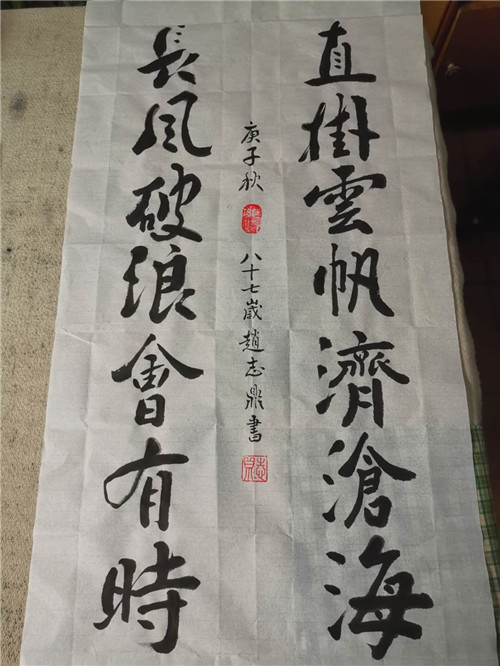 長風破浪會有時
直掛雲帆濟滄海
庚子秋
八十七歲趙志鼎書